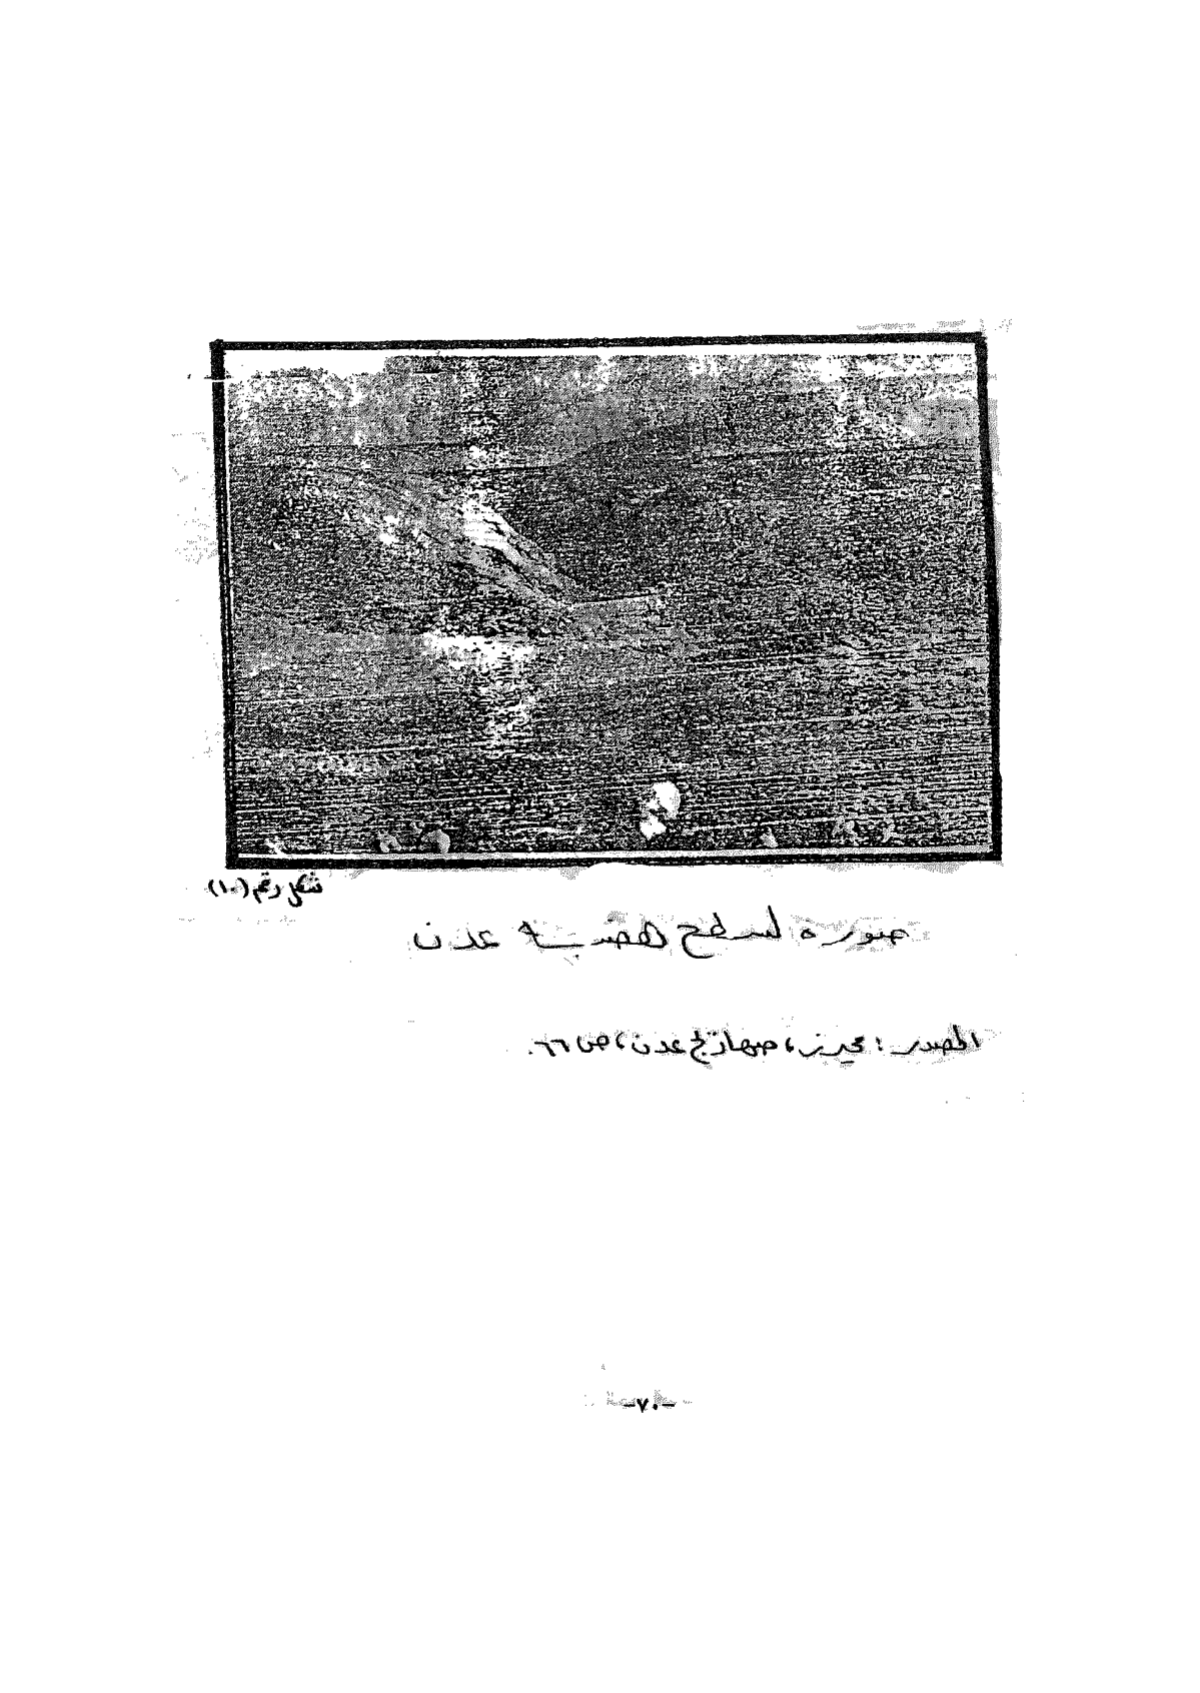 شكل رقم (١٠)
صورة لسطح هضبة عدن
المصدر : محيرز، صهاريج عدن، ص ٦٦.
-٧٠-